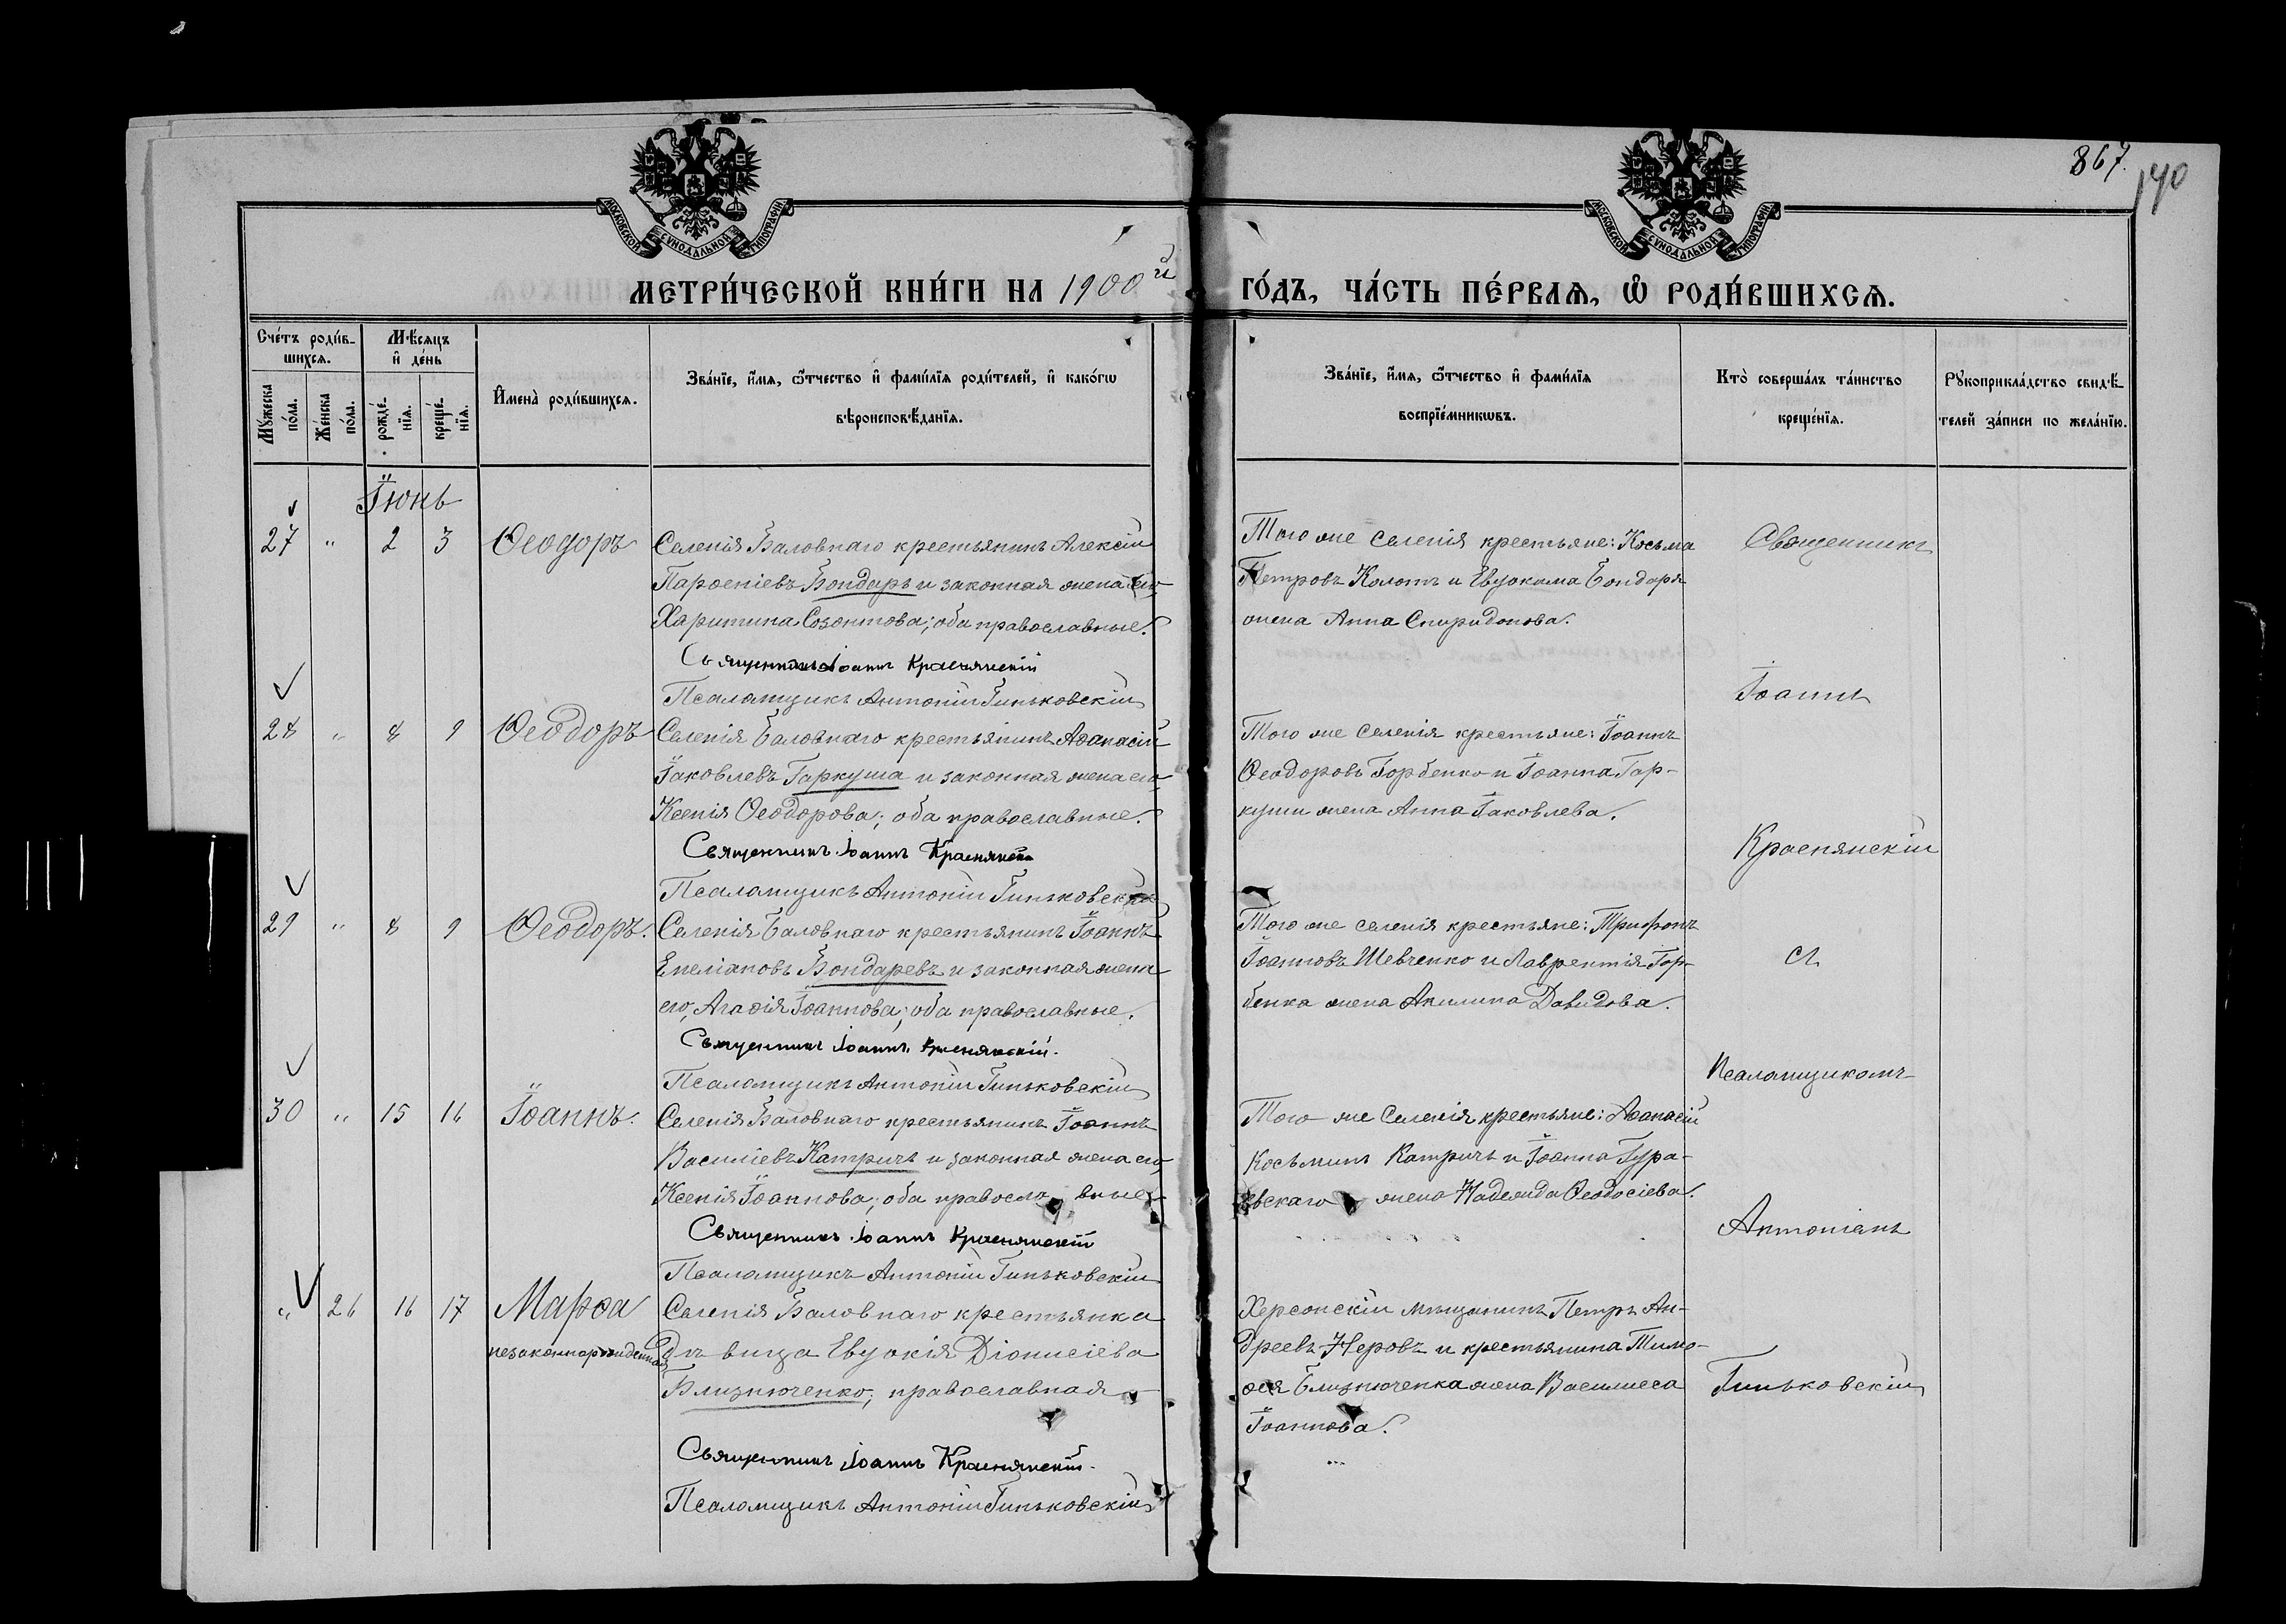 867.
140
МОСКОВСКОЙ СУНОДАЛЬНОЙ ТИПОГРАФІИ
МОСКОВСКОЙ СУНОДАЛЬНОЙ ТИПОГРАФІИ
МЕТРИ́ЧЕСКОЙ КНИ́ГИ НА 1900й ГО́ДЪ, ЧА́СТЬ ПЕ́РВАѦ, Ѡ҆ РОДИ́ВШИХСѦ.
Сче́тъ роди́в-
шихсѧ.
Мꙋ́жеска по́ла.
Же́нска по́ла.
Мѣ́сѧцъ
и҆ де́нь
рожде́-
нїѧ.
креще́-
нїѧ.
И҆мена̀ роди́вшихсѧ.
Зва́нїе, и҆́мѧ, ѻ҆́тчество и҆ фами́лїѧ роди́телей, и҆ како́гѡ
вѣроисповѣ́данїѧ.
Зва́нїе, и҆́мѧ, ѻ҆́тчество и҆ фами́лїѧ
воспрїе́мникѡвъ.
Кто̀ соверша́лъ та́инство
креще́нїѧ.
Рꙋкоприкла́дство свидѣ́-
телей за́писи по жела́нїю.
Іюнь
27 " 2 3 Ѳеодоръ
Селенія Баловнаго крестьянинъ Алексій
Парѳеніевъ Бондарь и законная жена его,
Харитина Созонтова; оба православные.
Священникъ Іоаннъ Краснянскій
Псаломщикъ Антоній Гиньковскій
Того же селенія крестьяне: Косьма
Петровъ Колотъ и Евдокима Бондаря
жена Анна Спиридонова.
28 " 8 9 Ѳеодоръ
Селенія Баловнаго крестьянинъ Аѳанасій
Іаковлевъ Гаркуша и законная жена его,
Ксенія Ѳеодорова; оба православные.
Священникъ Іоаннъ Краснянскій
Псаломщикъ Антоній Гиньковскій
Того же селенія крестьяне: Іоаннъ
Ѳеодоровъ Горбенко и Іоанна Гар-
куши жена Анна Іаковлева.
29 " 8 9 Ѳеодоръ.
Селенія Баловнаго крестьянинъ Іоаннъ
Емеліановъ Бондаревъ и законная жена
его, Агаѳія Іоаннова; оба православные.
Священникъ Іоаннъ Краснянскій.
Псаломщикъ Антоній Гиньковскій
Того же селенія крестьяне: Трифонъ
Іоанновъ Шевченко и Лаврентія Гор-
бенка жена Акилина Давидова.
30 " 15 16 Іоаннъ.
Селенія Баловнаго крестьянинъ Іоаннъ
Василіевъ Катричъ и законная жена его,
Ксенія Іоаннова; оба православные.
Священникъ Іоаннъ Краснянскій
Псаломщикъ Антоній Гиньковскій
Того же селенія крестьяне: Аѳанасій
Косьминъ Катричъ и Іоанна Гура-
евскаго жена Надежда Ѳеодосіева.
" 26 16 17 Марѳа
незаконнорожденная
Селенія Баловнаго крестьянка
дѣвица Евдокія Діонисіева
Близнюченко; православная
Священникъ Іоаннъ Краснянскій.
Псаломщикъ Антоній Гиньковскій
Херсонскій мѣщанинъ Петръ Ан-
дреевъ Неровъ и крестьянина Тимо-
ѳея Близнюченка жена Василисса
Іоаннова.
Священникъ
Іоаннъ
Краснянскій
съ
Псаломщикомъ
Антоніемъ
Гиньковскій